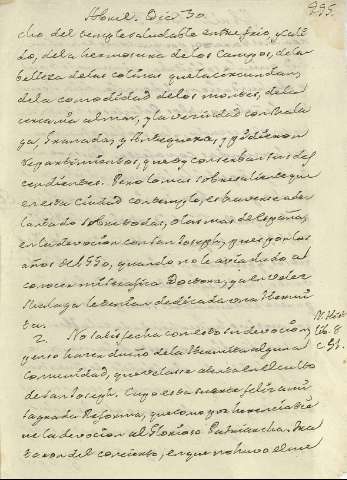 Dic. 30. 995.
cho del temple saludable entre frio, y cali
do, de la hermosura de los Campos, de la
belleza de las colinas que la circundan,
de la comodidad de los montes, de la
cercania al mar, y la vecindad con Mala
ga, Granada, y Antequera, y pidieron
repartimientos, que oy conservan sus des
cendientes. Pero lo mas sobresaliente que
en esta Ciudad contemplo, es haverse ade
lantado sobre todas, o las mas de España,
en la devocion con San Joseph, pues por los
años de 1550, quando no le avia dado al
conocer mi Serafica Doctora, ya en Velez
Malaga le tenian dedicada una Hermi
ta.
2. No satisfecha con esto su devocion,
quiso hacer dueño de la Hermita alguna
Comunidad, que velasse atenta en el culto
de San Joseph. Cupo esta suerte feliz a mi
sagrada Reforma, que como por herencia tie
ne la devocion al Glorioso Patriarcha. Tra
taron del convento, en que no huvo el me
lib. 8